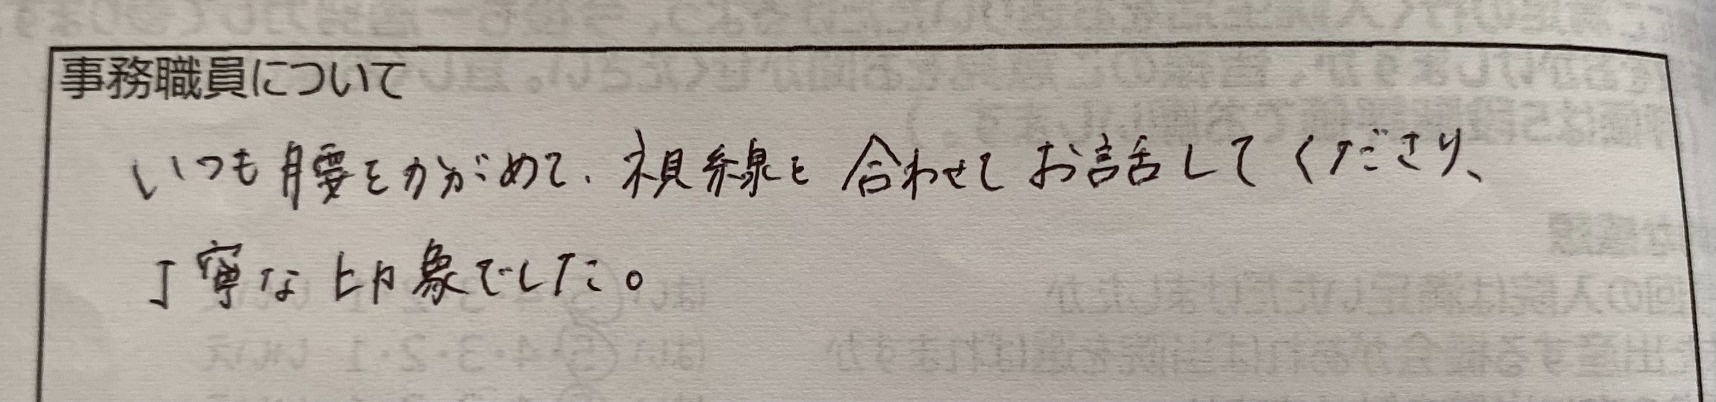 事務職員について
いつも腰をかがめて、視線を合わせてお話してくださり、
丁寧な印象でした。